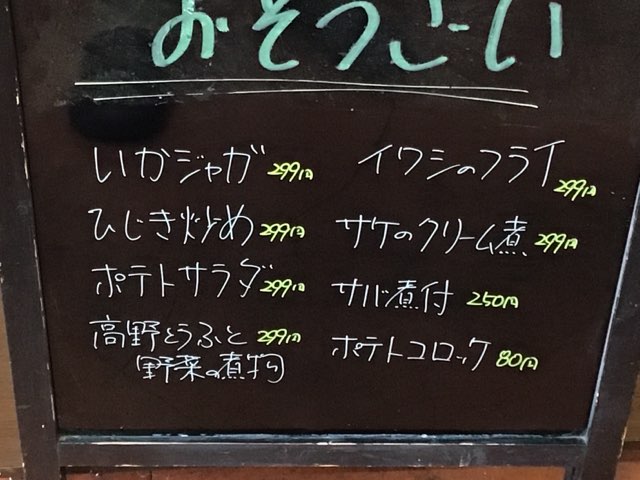 おそうざい
いかジャガ 299円
ひじき炒め 299円
ポテトサラダ 299円
高野とうふと 299円
野菜の煮物
イワシのフライ 299円
サケのクリーム煮 299円
サバ煮付 250円
ポテトコロッケ 80円